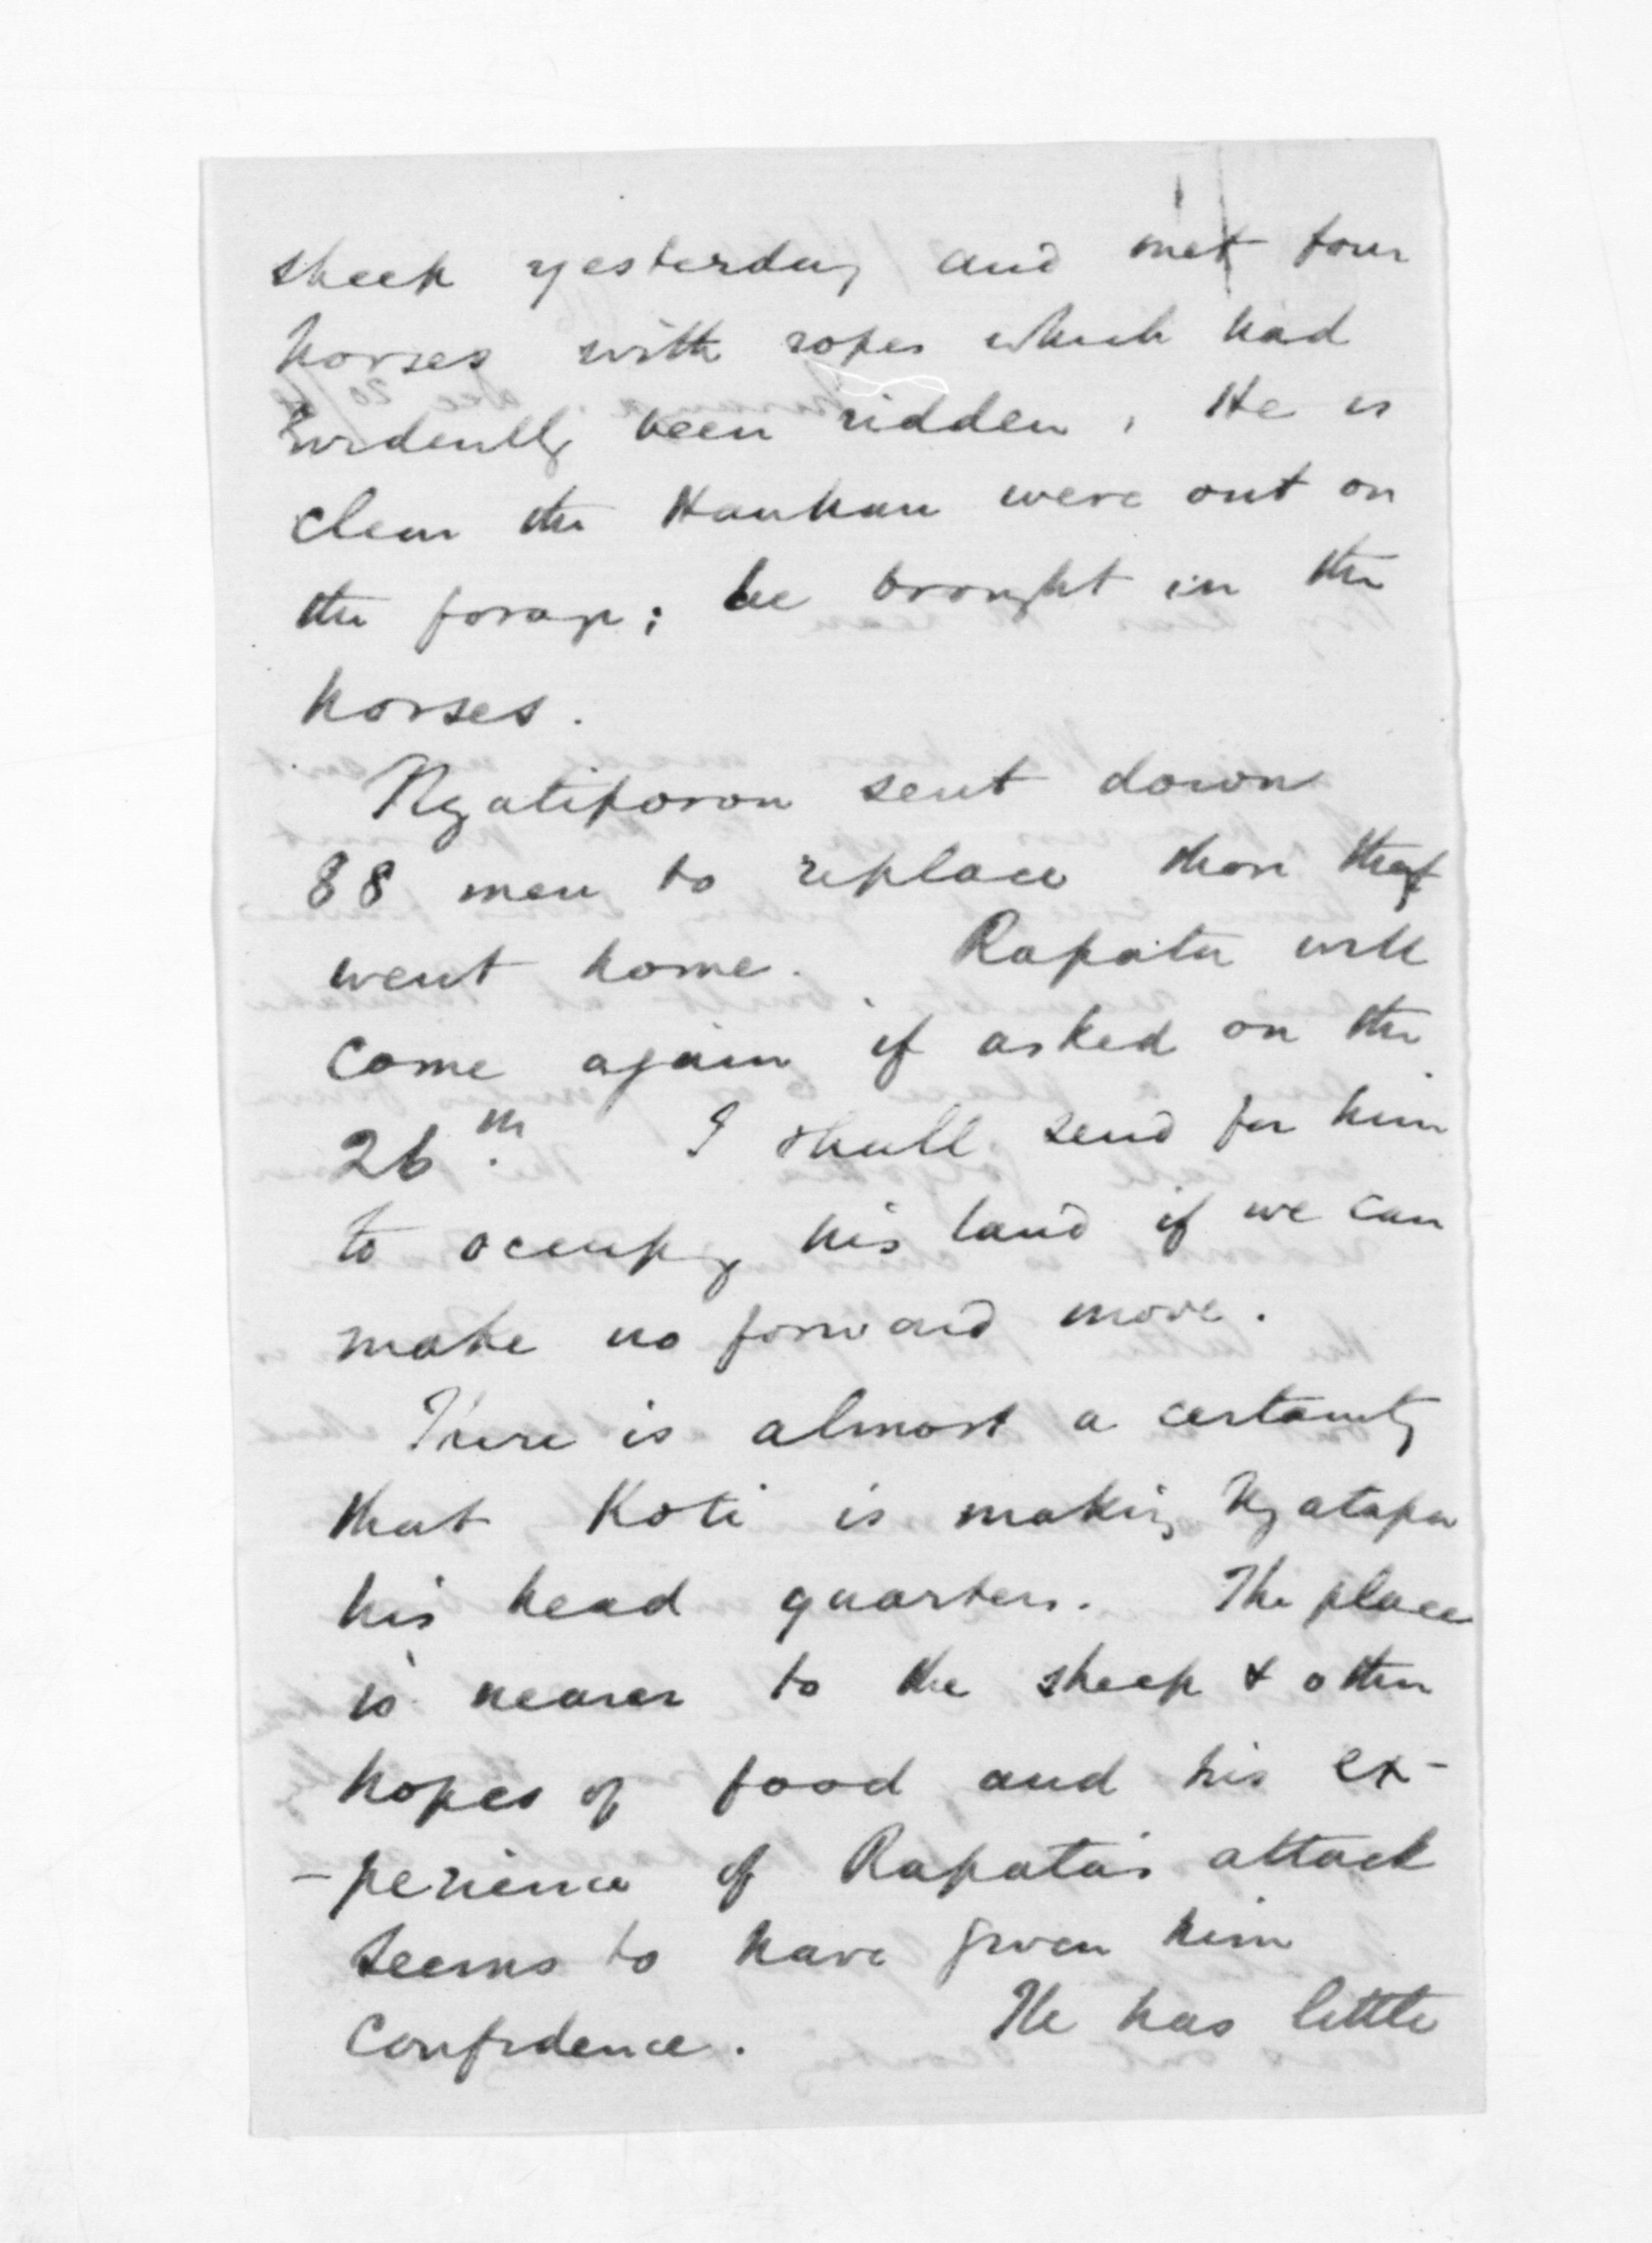 sheep yesterday and met four
horses with ropes which had
evidently been ridden, He is
clear the Hauhau were out on
the forage; he brought in the
horses.
Ngatiporou sent down
88 men to replace those that
went home. Rapata will
come again if asked on the
26th. I shall send for him
to occupy his land if we can
make no forward move.
There is almost a certainty
that Koti is making Ngatapa
his head quarters. The place
is nearer to the sheep & other
hopes of food and his ex-
-perience of Rapata's attack
seems to have given him
confidence. He has little